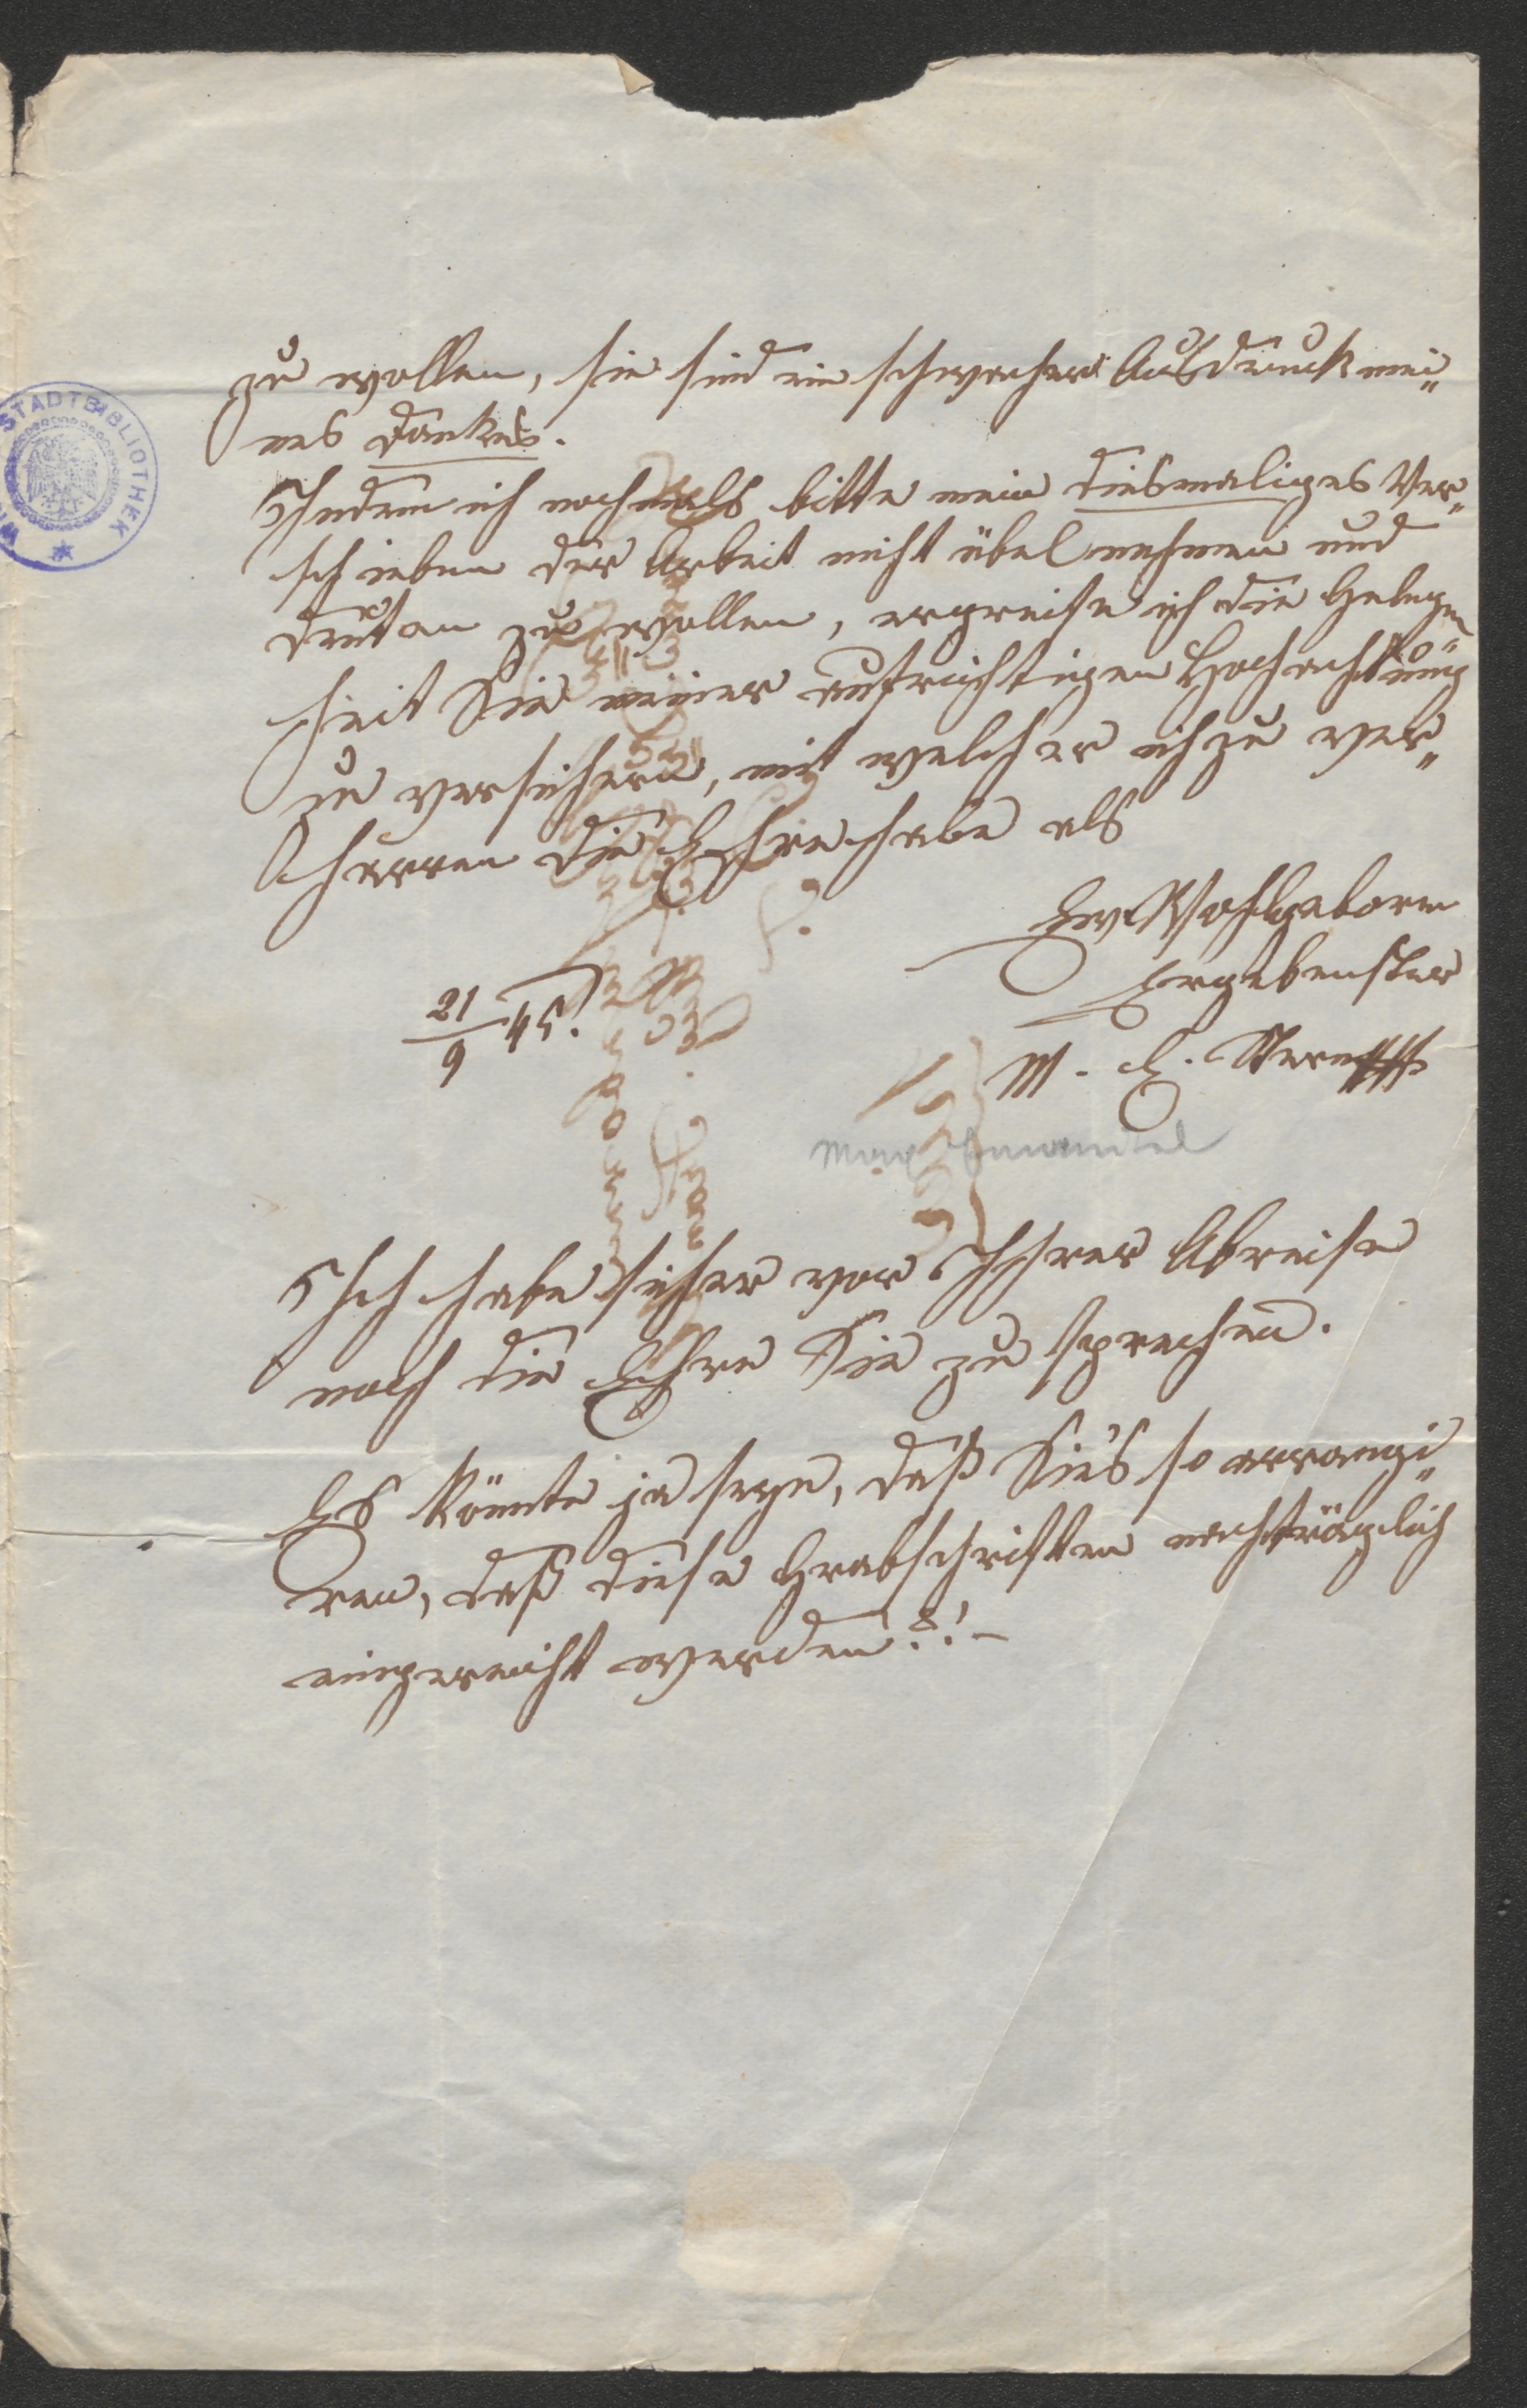 zu wollen, sie sind ein schwacher Ausdruck mei„
nes Dankes.
Indem ich nochmals bitte mein diesmaliges Ver„
schieben der Arbeit nicht übel nehmen und
deuten zu wollen, ergreife ich die Gelegen„
heit Sie meiner aufrichtigen Hochachtung
zu versichern, mit welcher ich zu ver„
harren die Ehre habe als
Ew Wohlgeborn
Ergebenster
M. E. Stern
21/9 45.
Max Emanuel
Ich habe sicher vor Ihrer Abreise
noch die Ehre Sie zu sprechen.
Es könnte ja seyn, daß Sie's so arrangi„
ren, daß diese Grabschriften nachträglich
eingereicht werden?!–
STADTBIBLIOTHEK